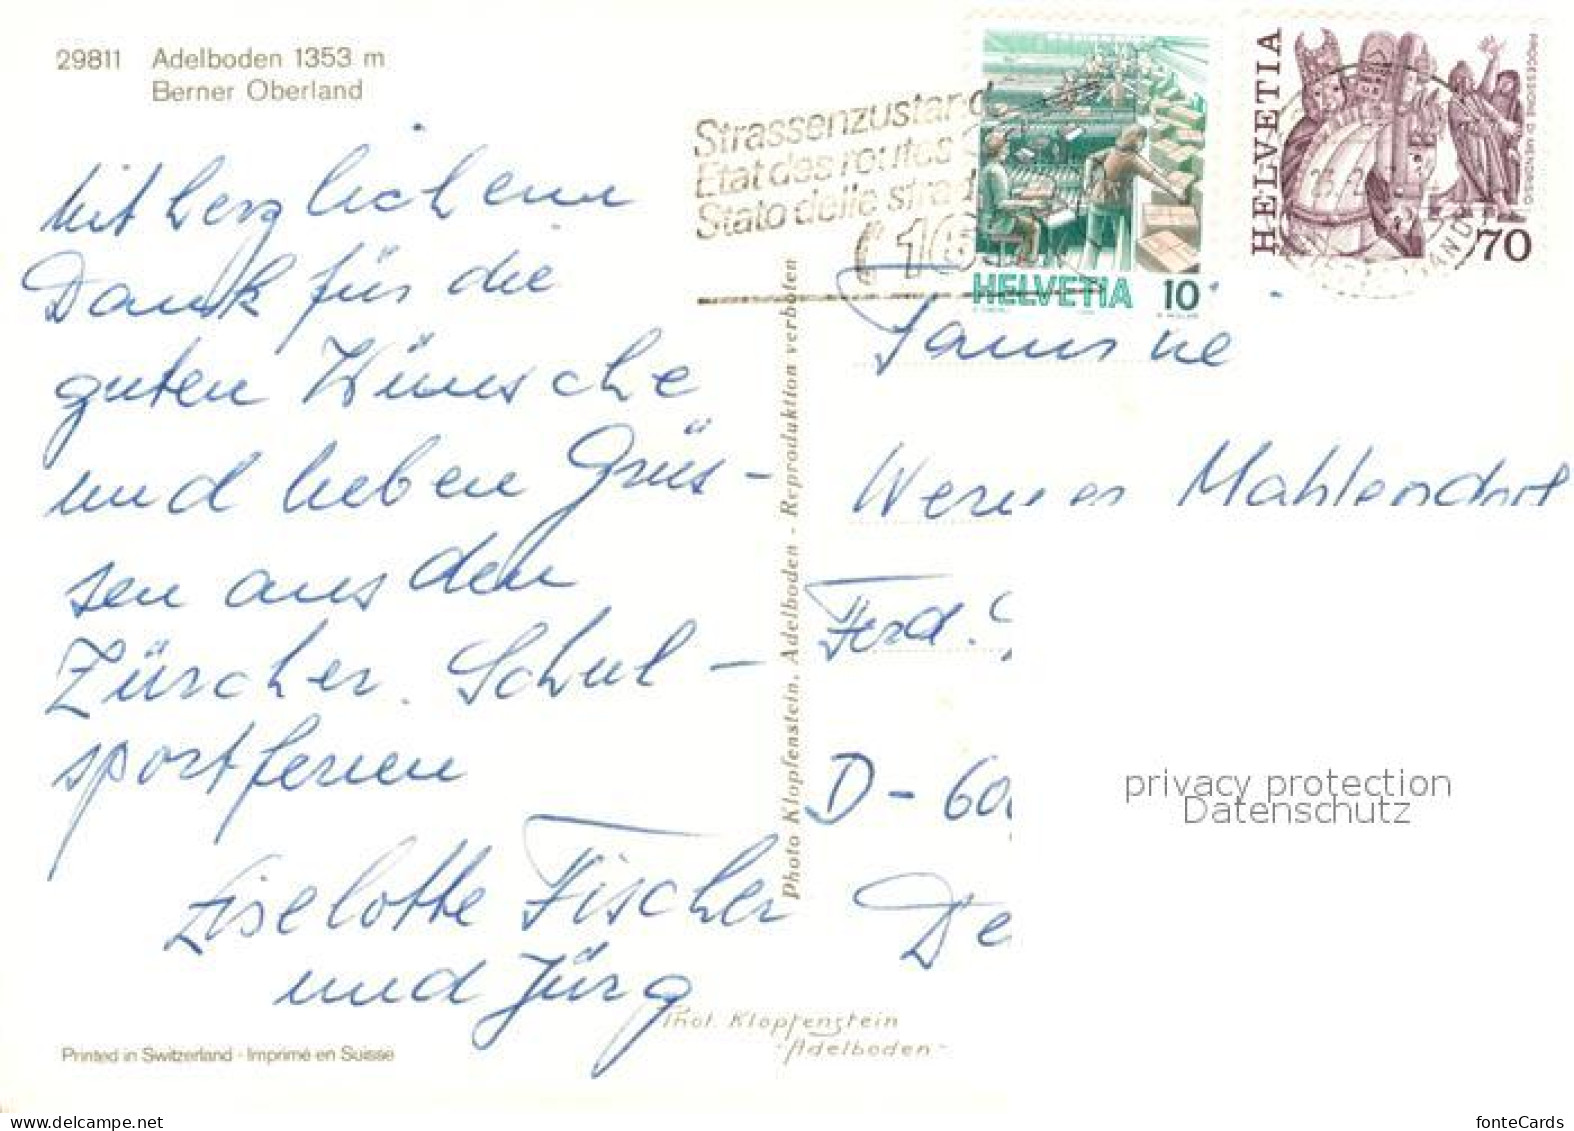 29811 Adelboden 1353 m
Berner Oberland
Strassenzustand
Etat des routes
Stato delle strad
HELVETIA 10
HELVETIA
PROCESSIONE DI MENDRISIO
70
Mit herzlichem
Dank für die
guten Wünsche
und lieben Grüs-
sen aus den
Zürcher Schul-
sportferien
Liselotte Fischer
und Jürg
Photo Klopfenstein, Adelboden - Reproduktion verboten
Familie
Werner Mahlendorf
Ferd.
D - 60
De
privacy protection
Datenschutz
Phot. Klopfenstein
-Adelboden-
Printed in Switzerland · Imprimé en Suisse
www.delcampe.net
fonteCards